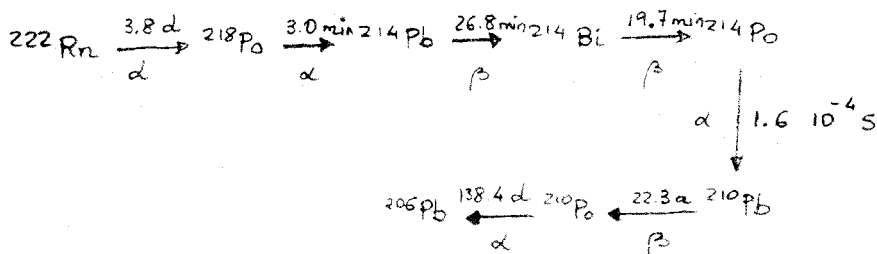 222Rn 3.8 d 218Po 3.0 min 214Pb 26.8 min 214Bi 19.7 min 214Po
α α β β
α 1.6 10-4 s
206Pb 138.4 d 210Po 22.3 a 210Pb
α β